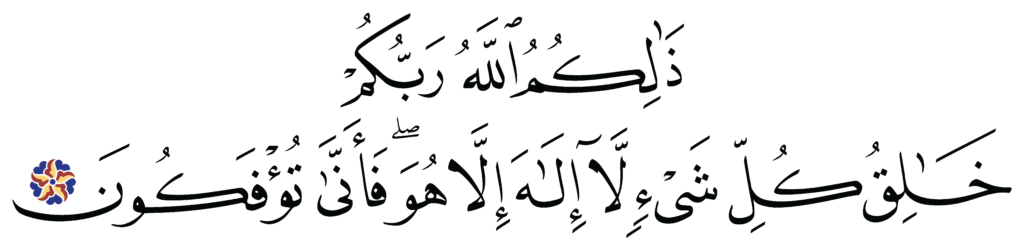 ذَٰلِكُمُ ٱللَّهُ رَبُّكُمْ
خَـٰلِقُ كُلِّ شَىْءٍ لَّآ إِلَـٰهَ إِلَّا هُوَ ۖ فَأَنَّىٰ تُؤْفَكُونَ